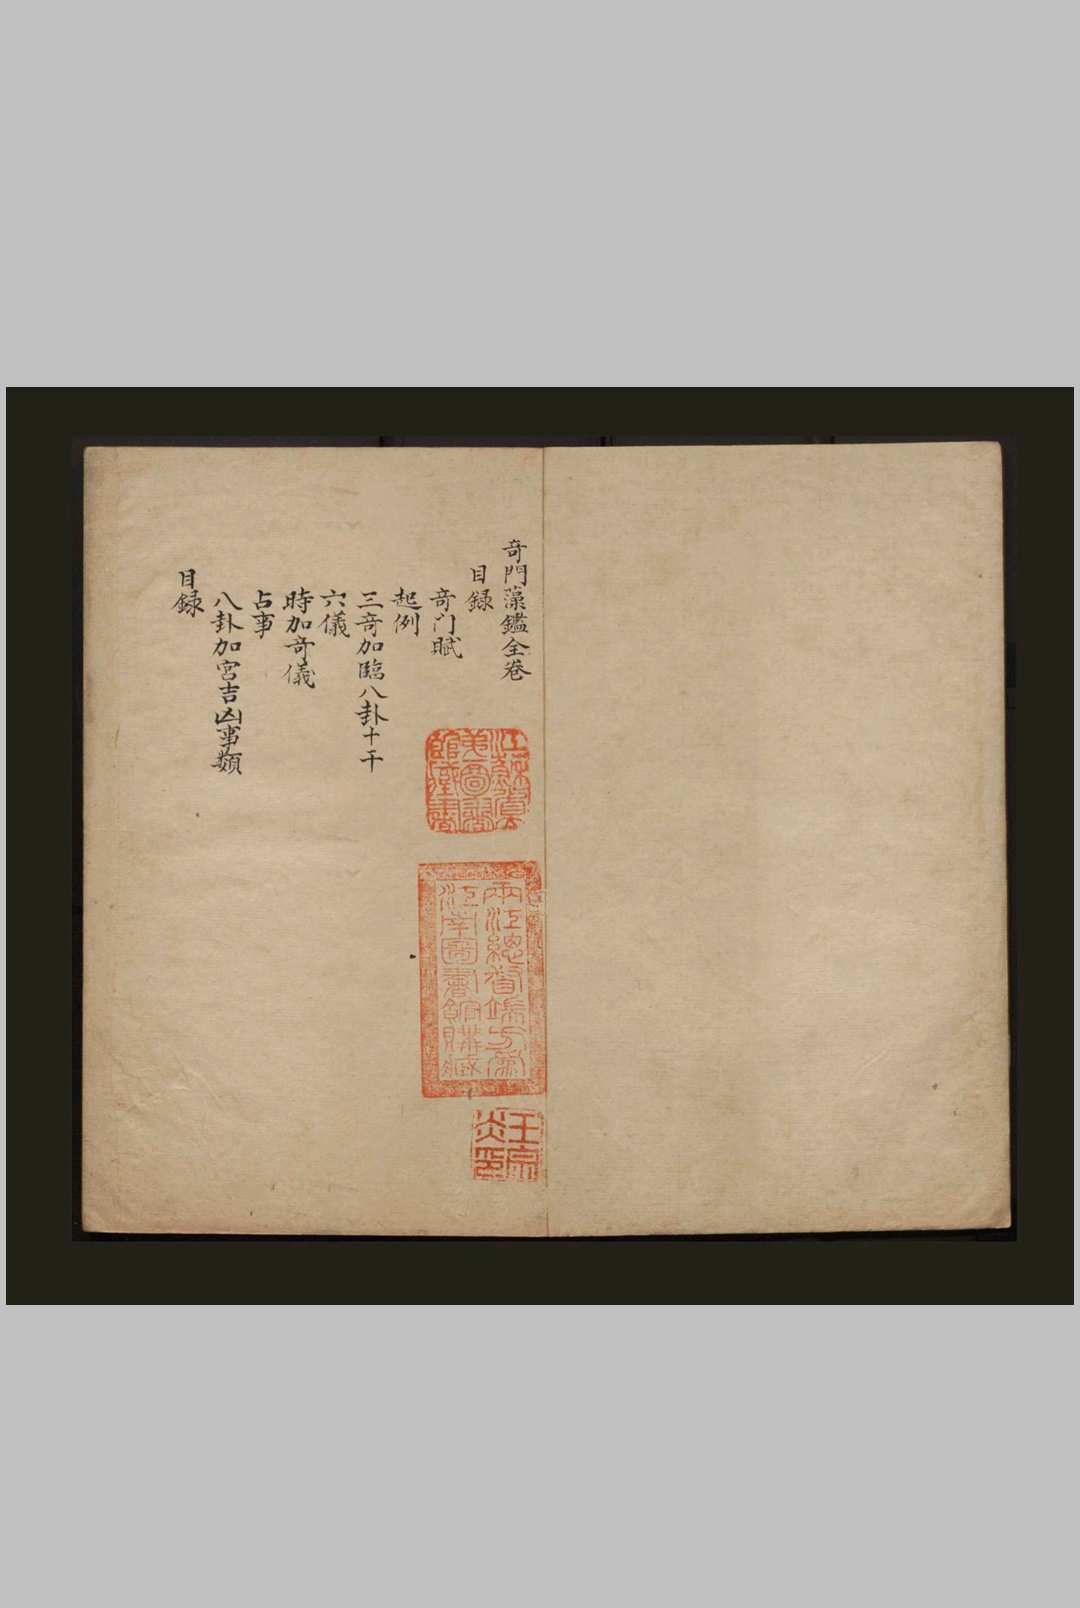 奇門藻鑑全卷
目錄
奇门賦
起例
三奇加臨八卦十干
六儀
時加奇儀
占事
八卦加宮吉凶事類
目録
江蘇第一圖書館藏書
兩江總督端方為
江南圖書館購藏